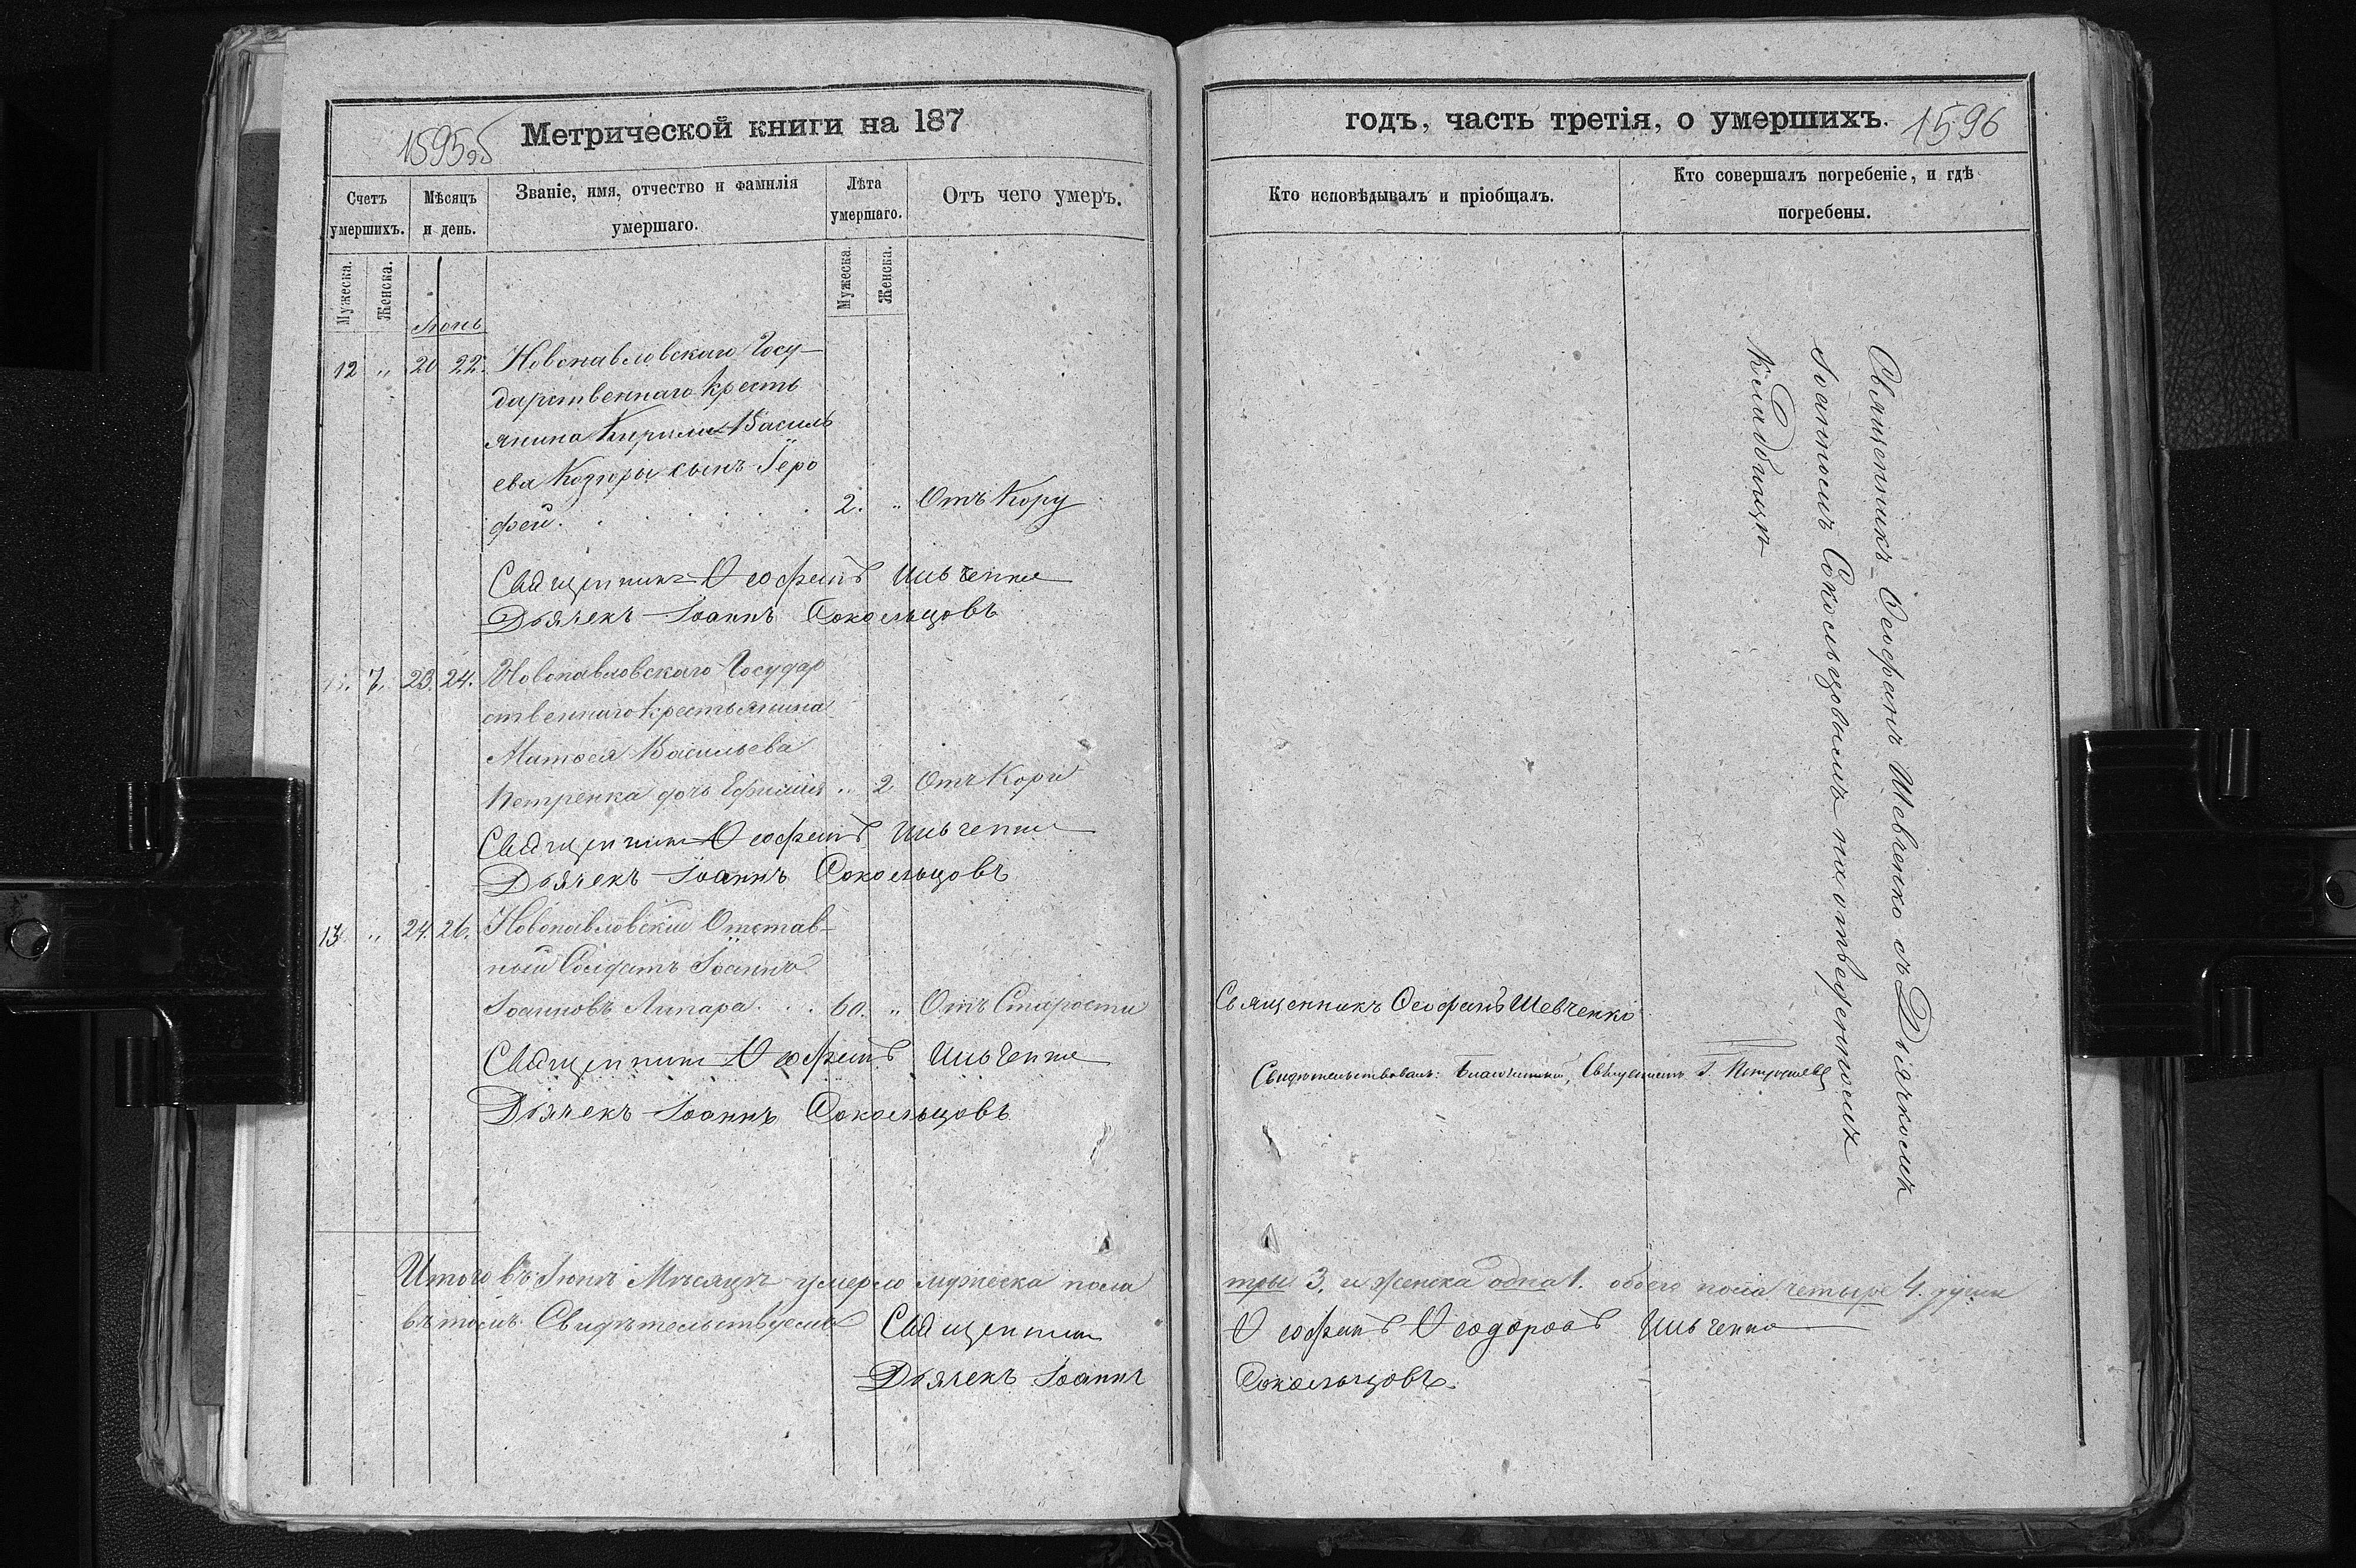 1595об
Метрической книги на 187
Счетъ умершихъ.
Мѣсяцъ и день.
Званіе, имя, отчество и фамилія умершаго.
Лѣта умершаго.
Отъ чего умеръ.
Мужеска.
Женска.
Мужеска.
Женска.
Июнь
12 „ 20 22. Новопавловскаго Госу-
дарственнаго кресть
янина Кирилы Василь
ева Кодюры сынъ Іеро
фей. 2. „ Отъ Кору
Священникъ Ѳеофанъ Шевченко
Дьячекъ Іоаннъ Сокольцовъ
„. 7. 23. 24. Новопавловскаго Государ
ственнаго крестьянина
Матѳея Васильева
Петренка дочь Ефимія „ 2 Отъ Кори
Священникъ Ѳеофанъ Шевченко
Дьячекъ Іоаннъ Сокольцовъ
13. „ 24. 26. Новопавловскій Отстав-
ный Солдатъ Іоаннъ
Іоанновъ Липара 60. „ Отъ Старости
Священникъ Ѳеофанъ Шевченко
Дьячекъ Іоаннъ Сокольцовъ
Итого въ Іюнѣ Мѣсяцѣ умерло мужеска пола
въ томъ Свидѣтельствуемъ Священникъ
Дьячекъ Іоаннъ
годъ, часть третія, о умершихъ.
1596
Кто исповѣдывалъ и пріобщалъ.
Кто совершалъ погребеніе, и гдѣ погребены.
Священникъ Ѳеофанъ Шевченко съ Дьячкомъ
Іоанномъ Сокольцовымъ на отведенномъ
Кладбищѣ
Священникъ Ѳеофанъ Шевченко
Свидѣтельствовалъ: Благочинный, Священникъ І.
три 3. и женска одна 1. обоего пола четыре 4. души
Ѳеофанъ Ѳеодоровъ Шевченко
Сокольцовъ.